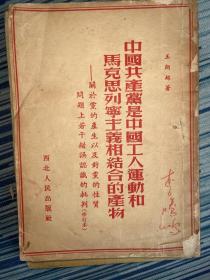 王朝超著
中國共產黨是中國工人運動和
馬克思列寧主義相結合的產物
——關於黨的產生以及對黨的性質
問題上若干錯誤認識的批判(修訂本)
西北人民出版社